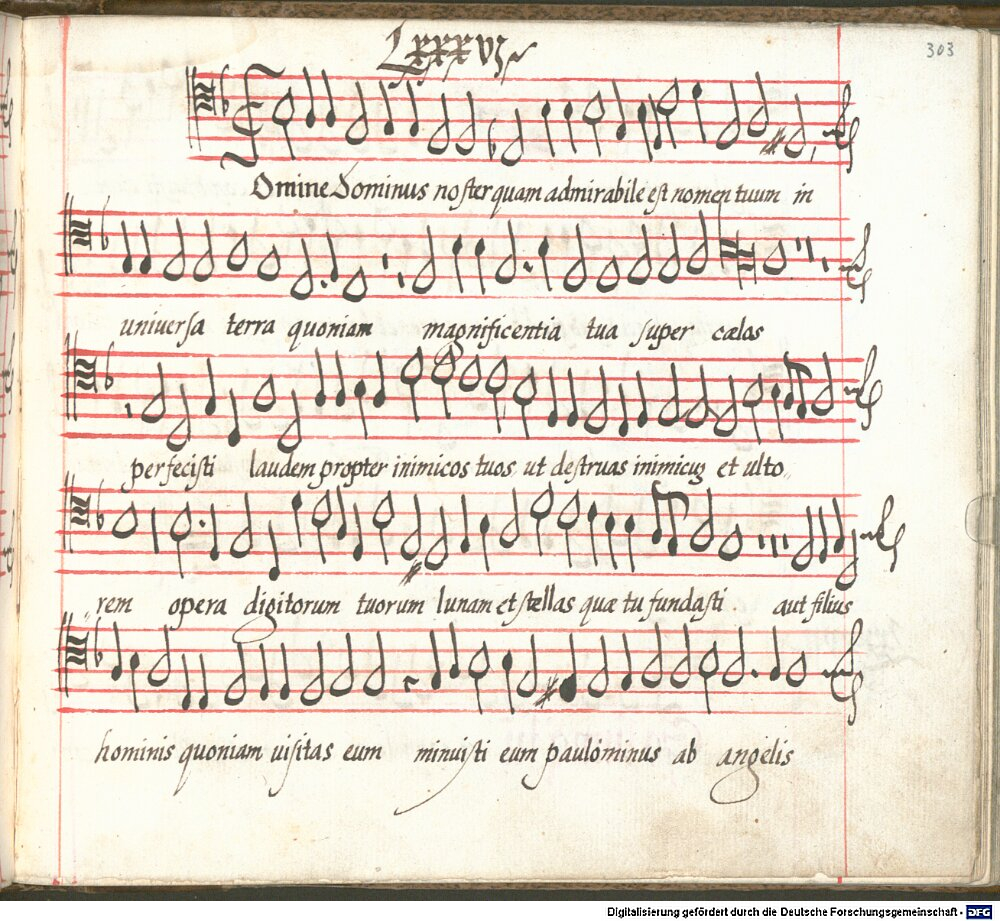 LXXXVJ
303
Omine Dominus noster quam admirabile est nomen tuum in
universa terra quoniam magnificentia tua super cælos
perfecisti laudem propter inimicos tuos ut destruas inimicuʒ et ulto
rem opera digitorum tuorum lunam et stellas quæ tu fundasti aut filius
hominis quoniam visitas eum minuisti eum paulominus ab angelis
Digitalisierung gefördert durch die Deutsche Forschungsgemeinschaft - DFG